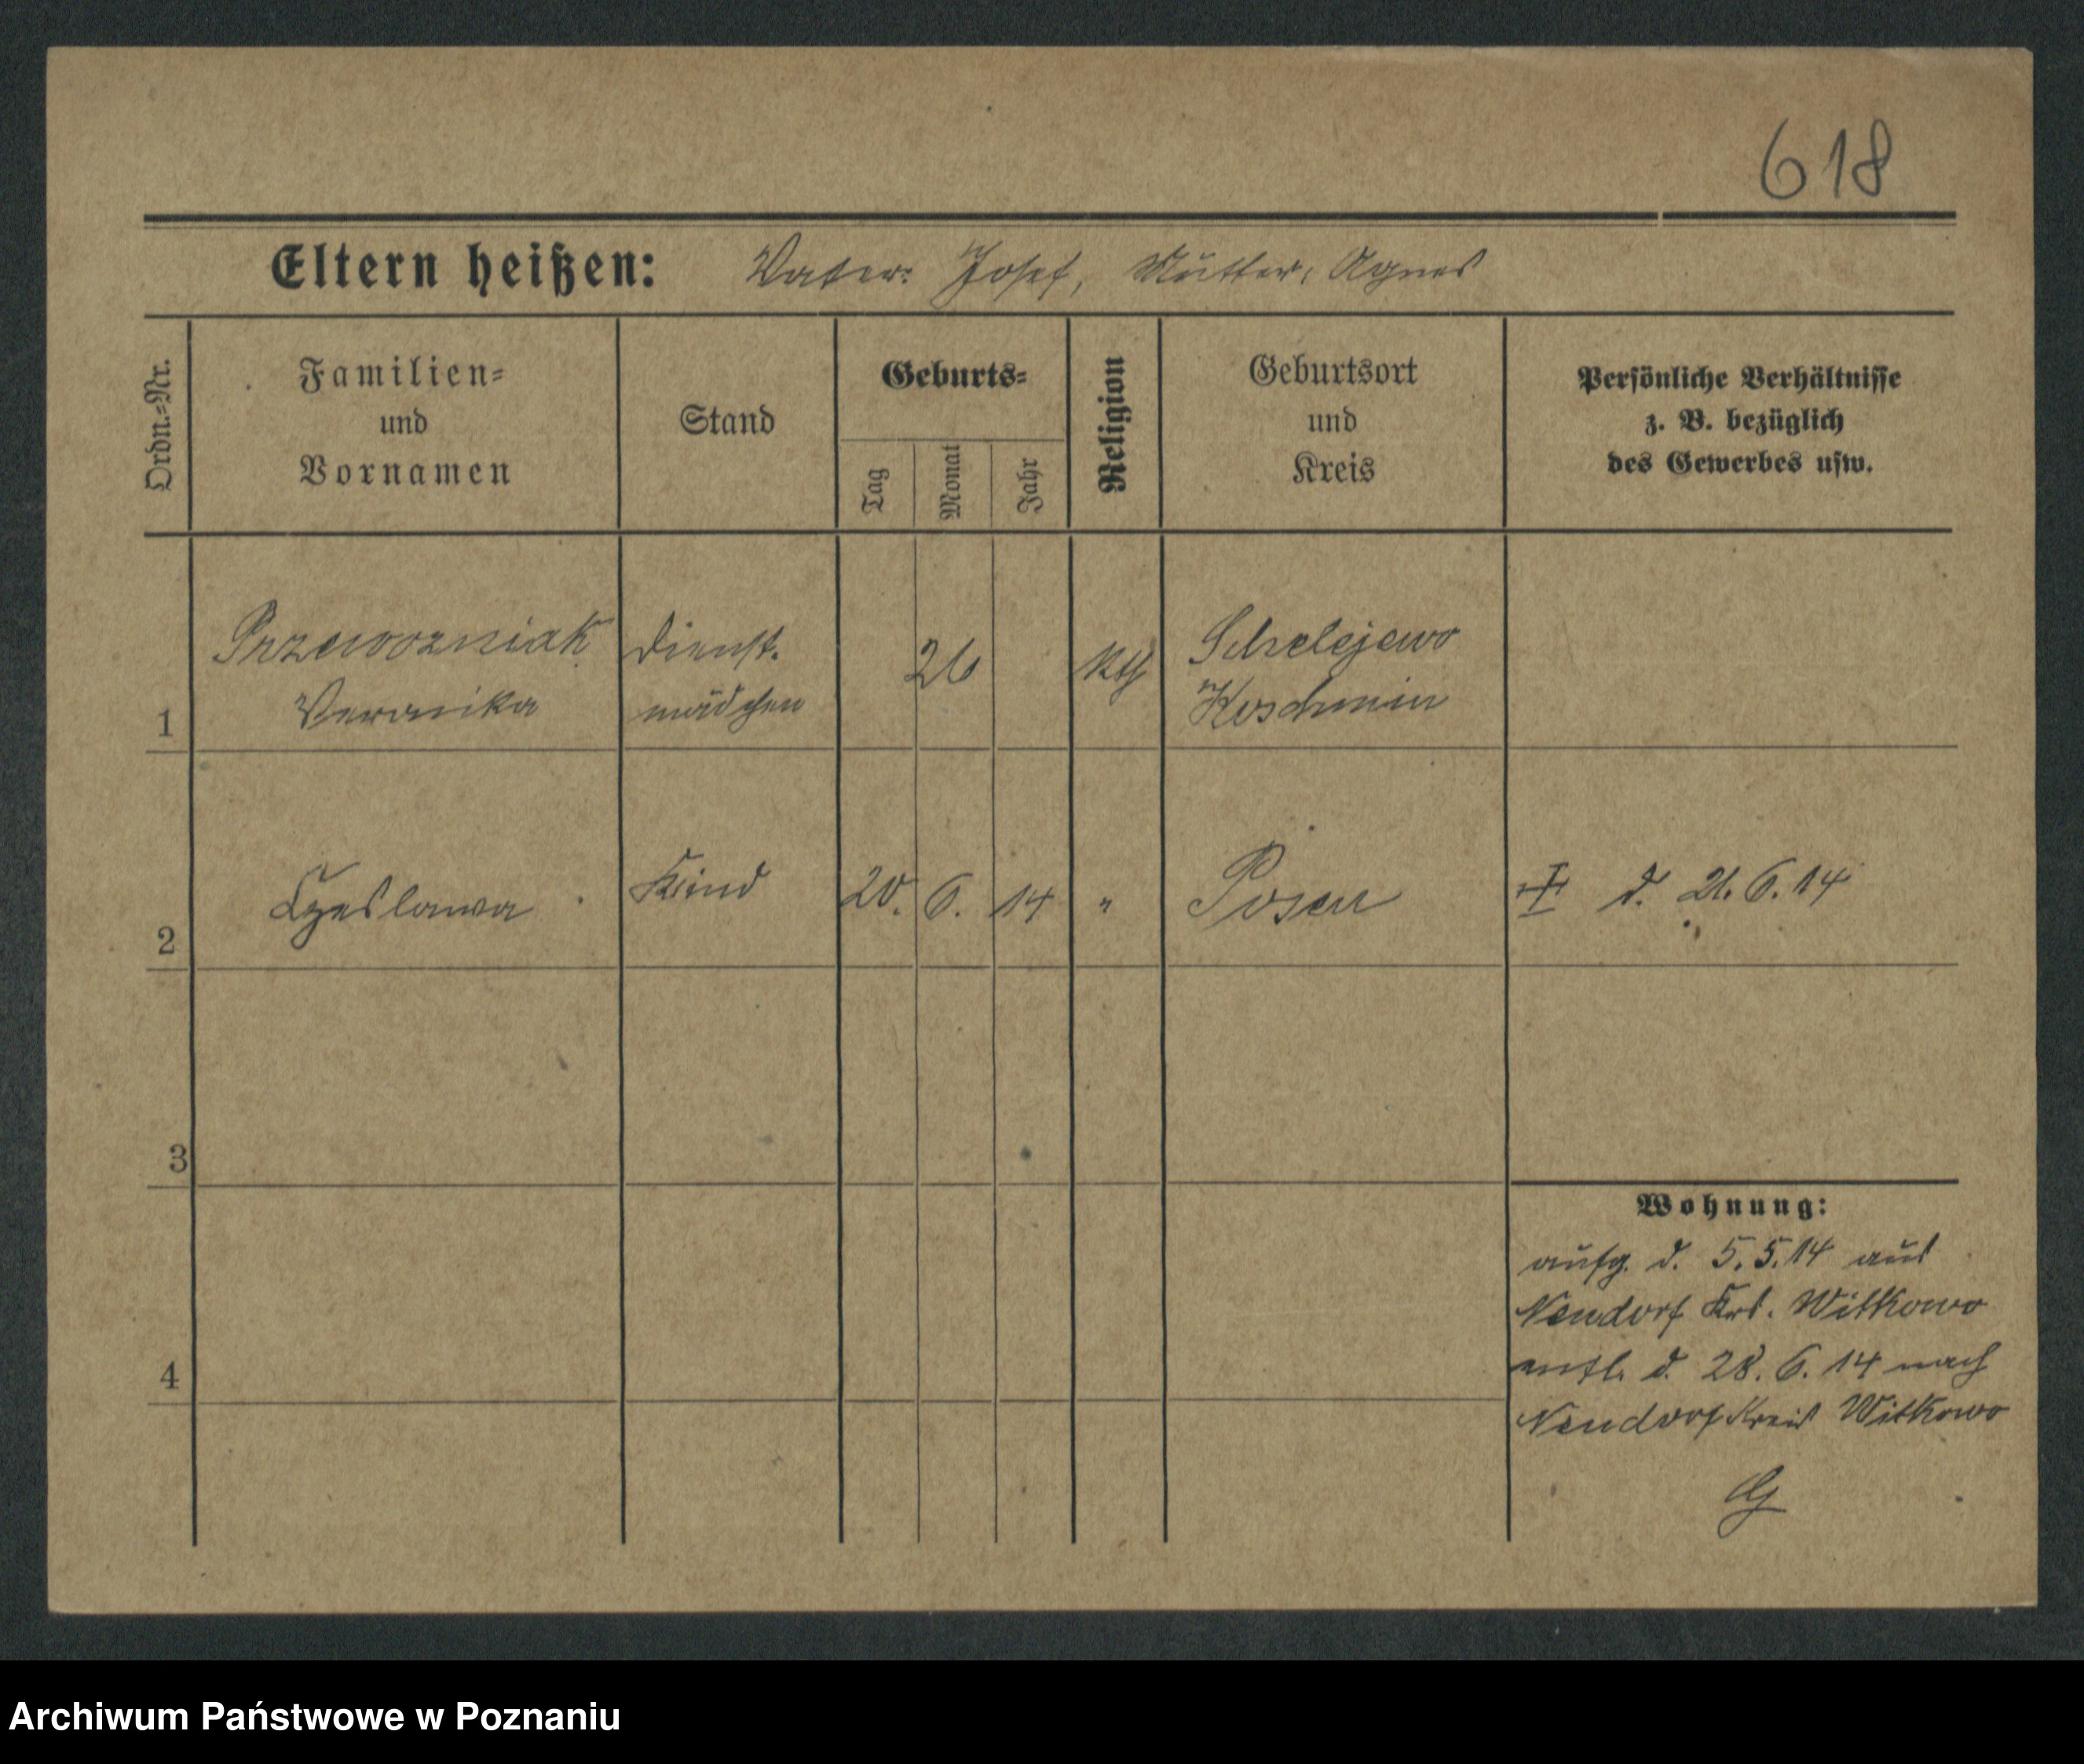 618
Eltern heißen: Vater: Josef, Mutter: Agnes
Ordn.=Nr.
Familien=
und
Vornamen
Stand
Geburts=
Tag
Monat
Jahr
Religion
Geburtsort
und
Kreis
Persönliche Verhältnisse
z. B. bezüglich
des Gewerbes usw.
1 Przewozniak Dienst- 26 kth Schelejewo
Veronika mädchen Koschmin
2 Czeslawa Kind 20. 6. 14 " Posen d. 21.6.14
3
4
Wohnung:
aufg. d. 5.5.14 aus
Neudorf Krs. Witkowo
entl. d. 28.6.14 nach
Neudorf Kreis Witkowo
Archiwum Państwowe w Poznaniu